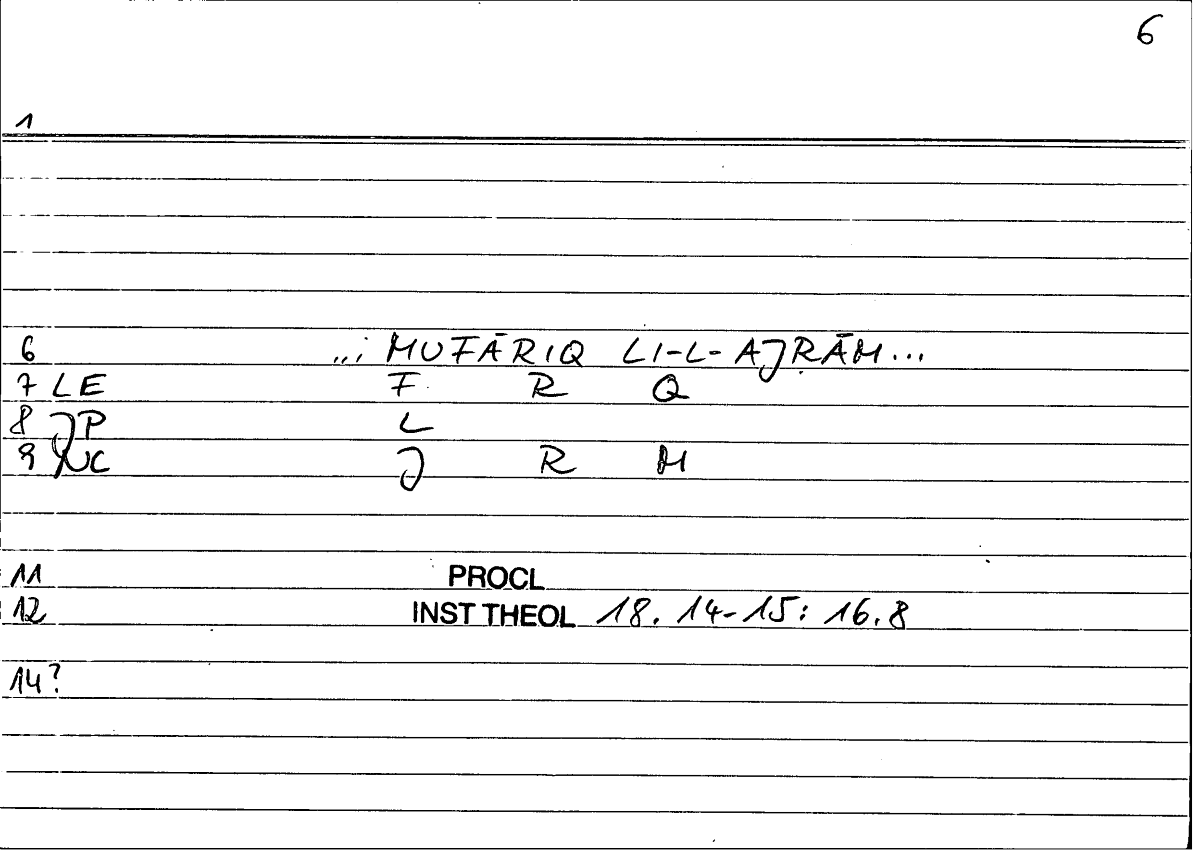 6
1
6 ... MUFĀRIQ LI-L-AJRĀM...
7 LE F R Q
8 JP L
9 NC J R M
11 PROCL
12 INST THEOL 18. 14-15: 16.8
14?